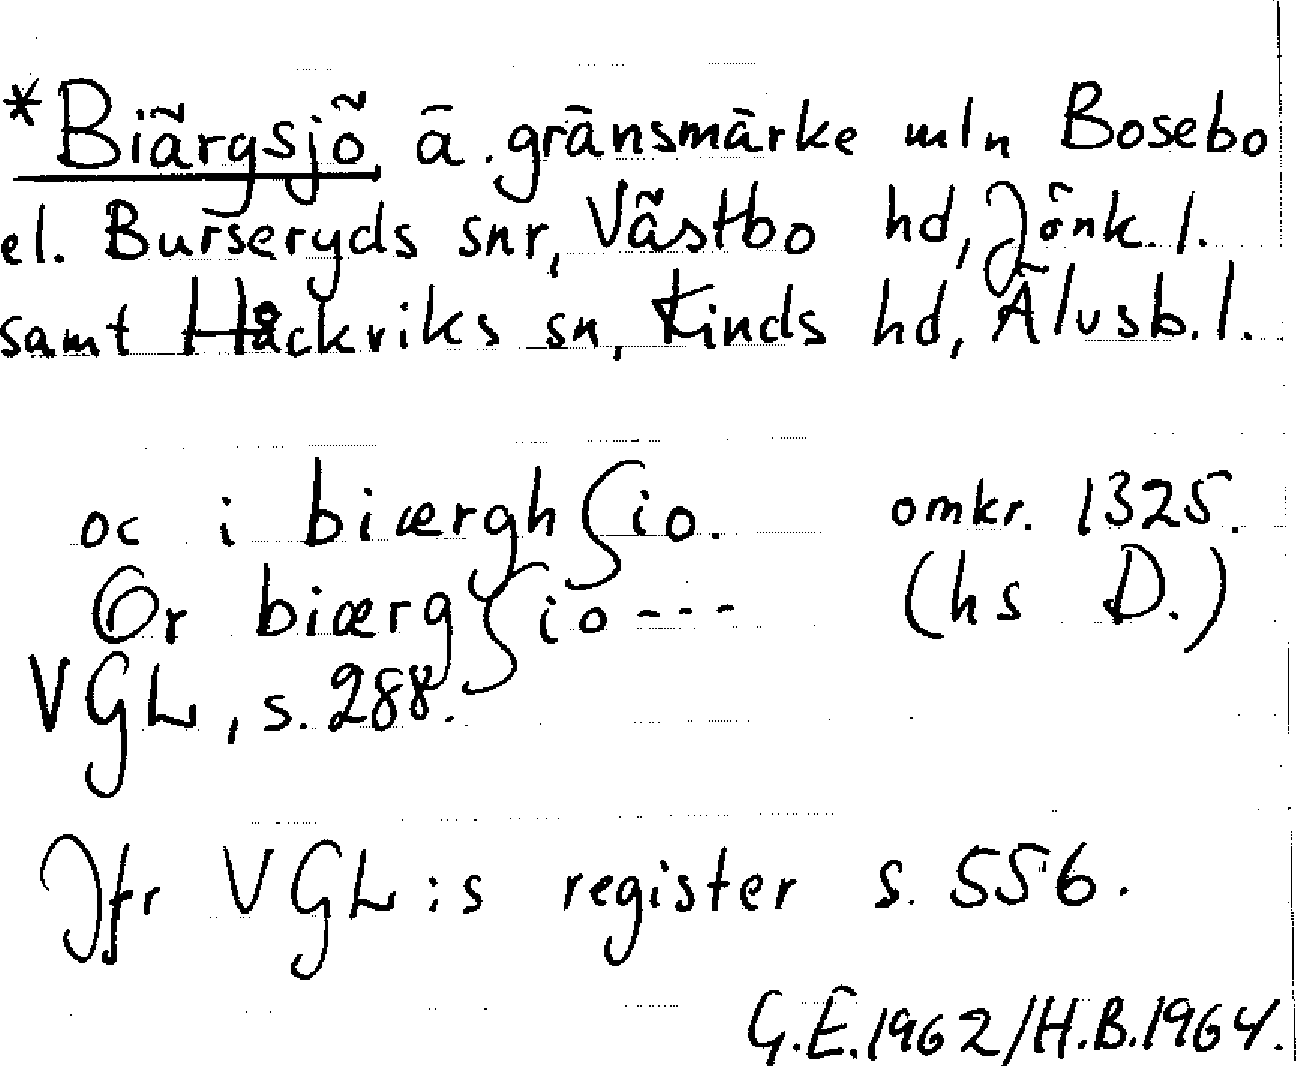 *Biärgsjö ä. gränsmärke mln Bosebo
el. Burseryds snr, Västbo hd, Jönk. l.
samt Håckviks sn, Kinds hd, Älvsb. l.
oc i biærghſio. omkr. 1325.
Or biærgſio--- (hs D.)
VGL, s. 288.
Jfr VGL:s register s. 556.
G.E.1962/H.B.1964.